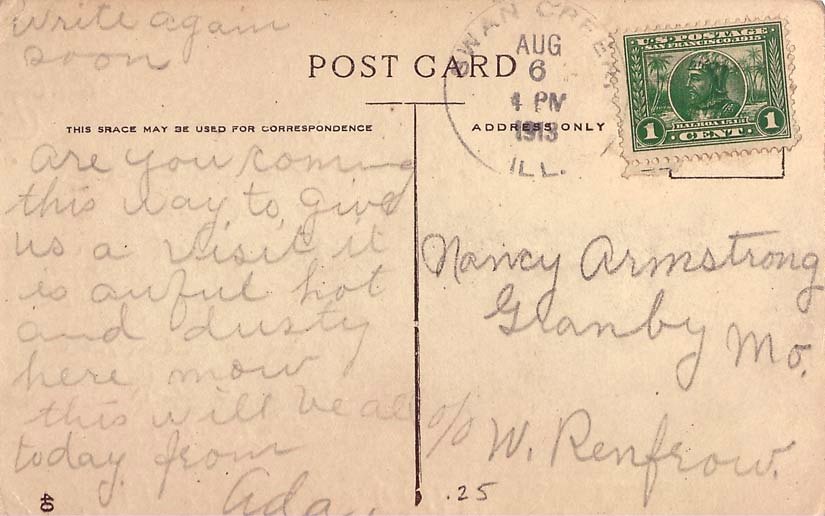 Write again
soon
POST CARD
THIS SRACE MAY BE USED FOR CORRESPONDENCE
ADDRESS ONLY
SWAN CREEK
AUG
6
4 PM
1913
ILL.
U.S. POSTAGE
SAN FRANCISCO 1915
BALBOA 1513
1 CENT. 1
are you coming
this way to give
us a visit it
is awful hot
and dusty
here, mow
this will be all
today from
Ada.
Nancy Armstrong
Granby Mo.
c/o W. Renfrow.
.25
40